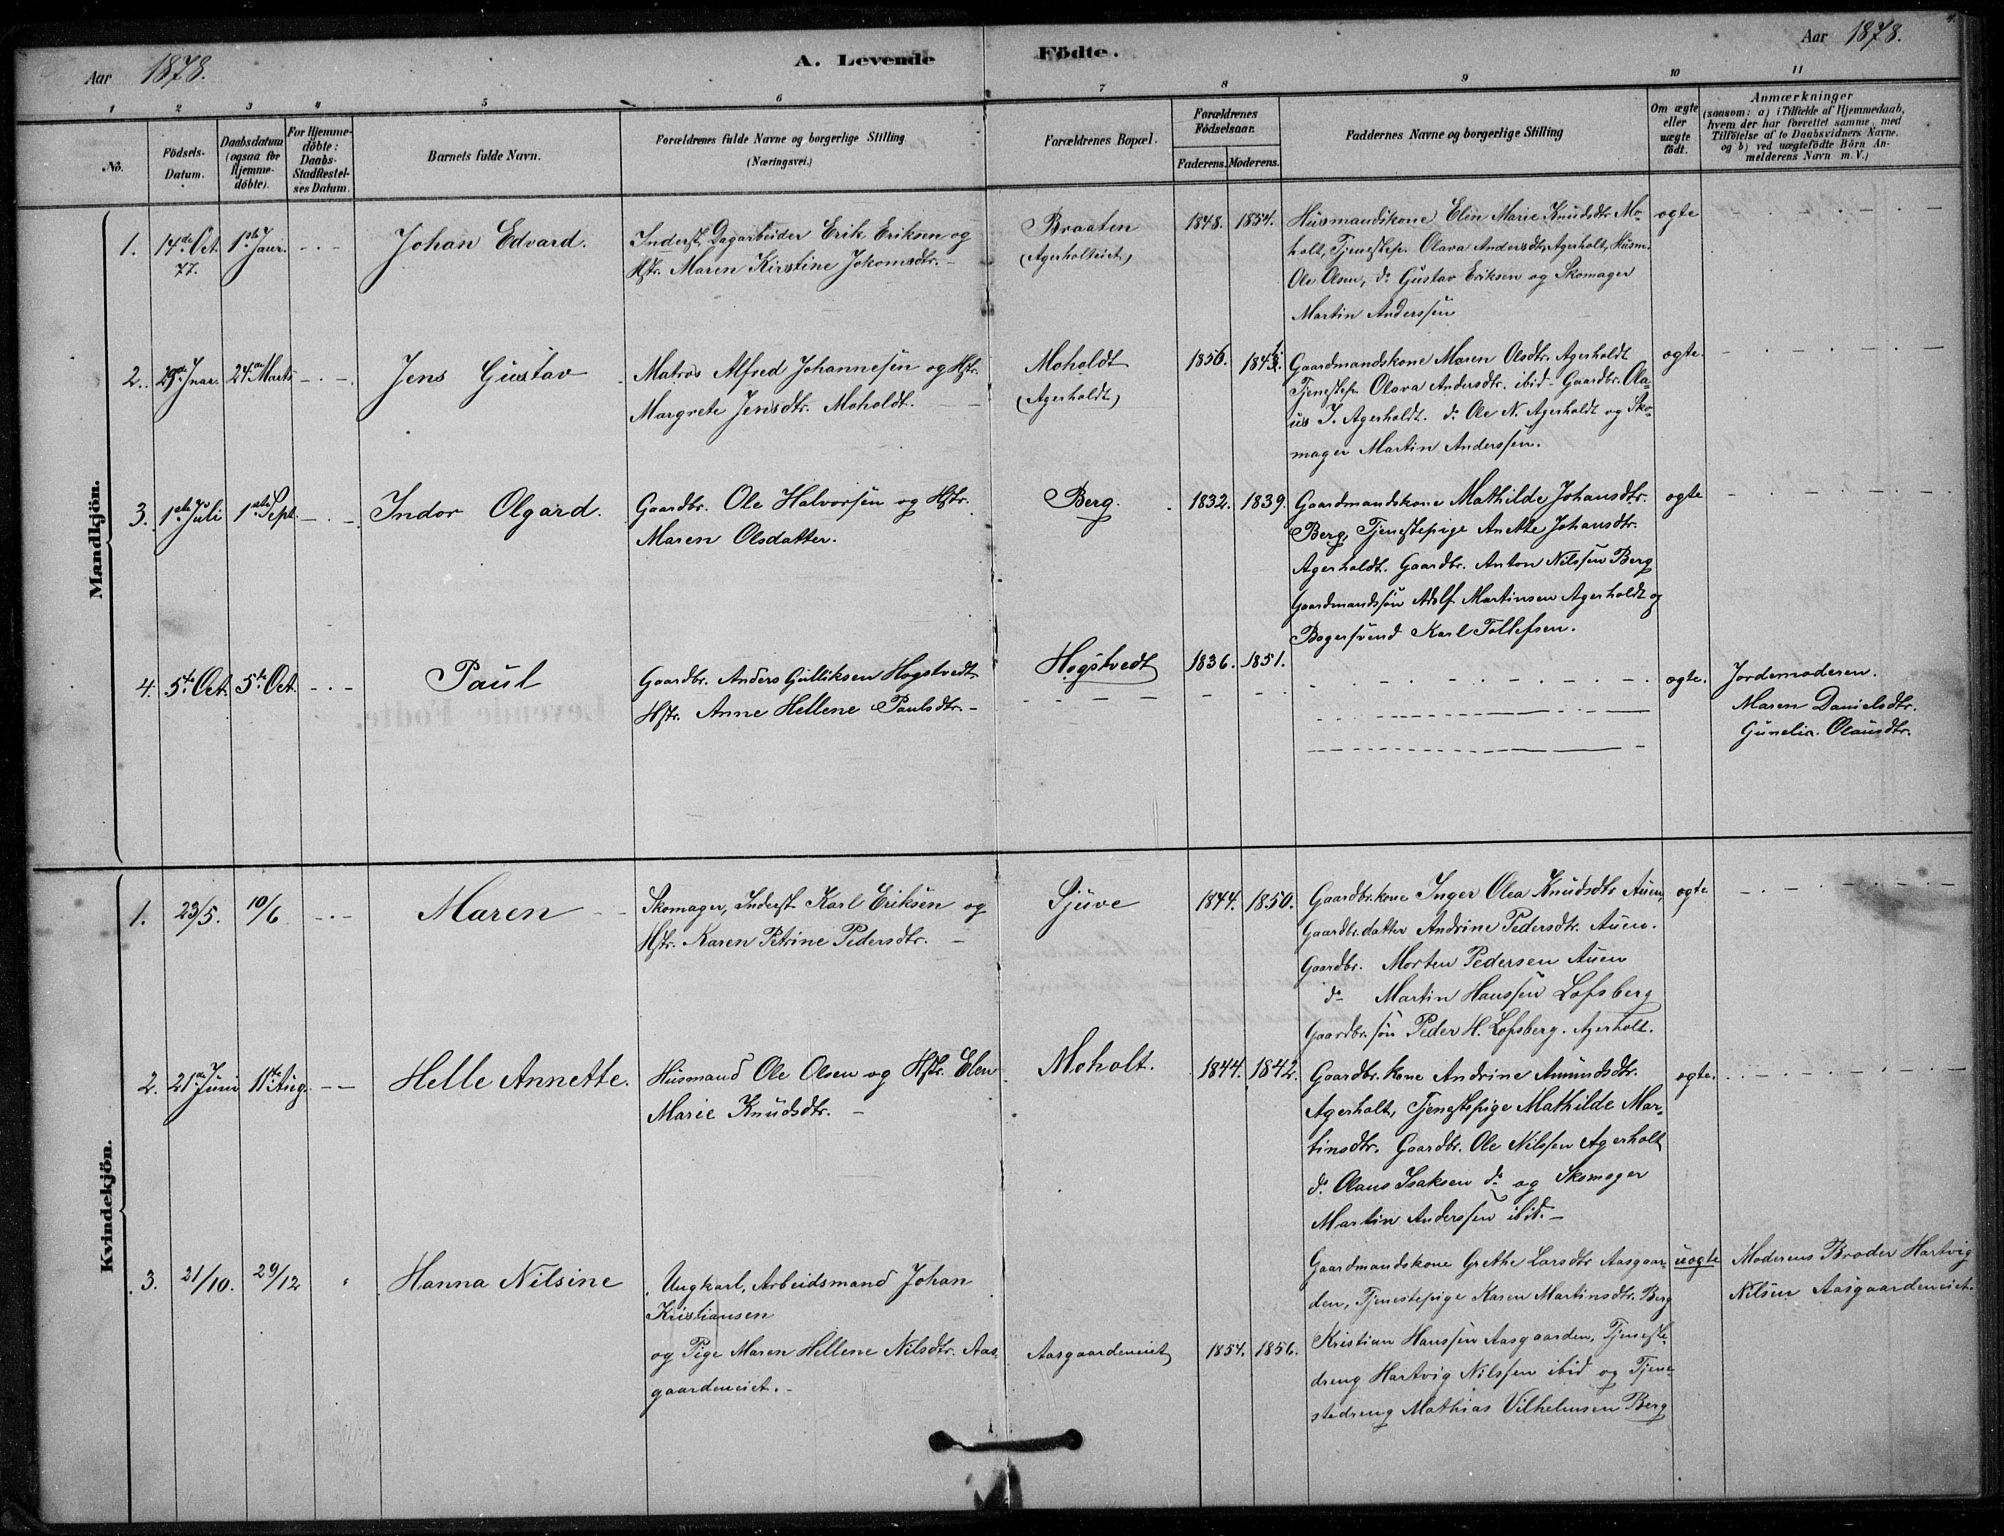 Aar 1878. A. Levende Födte. Aar 1878. 4.
1 2 3 4 5 6 7 8 9 10 11
No. Födsels-Datum. Daabsdatum (ogsaa for Hjemme-döbte). For Hjemme-döbte: Daabs-Stadfæstel-ses Datum. Barnets fulde Navn. Forældrenes fulde Navne og borgerlige Stilling (Næringsvei.) Forældrenes Bopæl. Forældrenes Födselsaar. Faderens. Moderens. Faddernes Navne og borgerlige Stilling Om ægte eller uægte födt. Anmærkninger (saasom: a) i Tilfælde af Hjemmedaab, hvem der har forrettet samme, med Tilföielse af to Daabsvidners Navne. og b) ved uægtefödte Börn An-melderens Navn m. V.)
Mandkjön.
1. 14de Oct. 77. 1ste Janr. Johan Edvard. Inderst, Dagarbeider Erik Eriksen og
Hstr. Maren Kirstine Jokomsdtr. –
Braaten
(Agerholteiet)
1848. 1854. Husmandskone Elen Marie Knudsdtr. Mo-
holt, Tjenestep. Olava Andersdtr, Agerholt, Husm.
Ole Olsen, do Gustav Eriksen og Skomager
Martin Anderssen
ægte
2. 29de Jnar. 24de Marts Jens Gustav Matros Alfred Johannesen og Hstr.
Margrete Jensdtr. Moholdt. –
Moholdt
(Agerholdt)
1850. 1845. Gaardmandskone Maren Olsdtr. Agerholdt
Tjenestep. Olava Andersdtr. ibid – Gaardbr. Ola-
us I. Agerholdt. do Ole N. Agerholdt og Sko-
mager Martin Anderssen.
ægte.
3. 1ste Juli 1ste Sept. Indor Olgard. Gaardbr. Ole Halvorsen og Hstr.
Maren Olsdatter.
Berg. 1832. 1839. Gaardmandskone Mathilde Johansdtr.
Berg, Tjenestepige Anette Johansdtr.
Agerholdt. Gaardbr. Anton Nilssen Berg
Gaardmandssön Adolf Martinsen Agerholdt og
Bagersvend Karl Tollefsen.
ægte
4. 5te Oct. 5te Oct. Paul Gaardbr. Anders Gulliksen Hogstvedt
Hstr. Anne Hellene Paulsdtr. –
Hogstvedt 1836. 1851. ægte. Jordemoderen.
Maren Danielsdtr.
Gunelia Olausdtr.
Kvindekjön.
1. 23/5. 10/6 Maren Skomager, Inderst Karl Eriksen og
Hstr. Karen Petrine Pedersdtr. –
Sjuve 1844. 1850. Gaardbr.kone Inger Olea Knudsdtr Auen,
Gaardbr.datter Andrine Pedersdtr. Auen.
Gaardbr. Morten Pedersen Auen
do Martin Hanssen Lofsberg
Gaardbr.sön Peder H. Lofsberg. Agerholt.
ægte
2. 21de Juni 11te Aug. Helle Annette. Husmand Ole Olsen og Hstr. Elen
Marie Knudsdtr. –
Moholt. 1844. 1842. Gaardbr.kone Andrine Amundsdtr.
Agerholt, Tjenestepige Mathilde Mar-
tinsdtr. Gaardbr. Ole Nilssen Agerholt
do. Olaus Isaksen do og Skomager
Martin Anderssen ibid. –
ægte.
3. 21/10. 29/12 Hanna Nilsine Ungkarl, Arbeidsmand Johan
Kristiansen
og Pige Maren Hellene Nilsdtr. Aas-
gaardeneiet. –
Aasgaardeneiet 1854. 1856. Gaardmandskone Grethe Larsdtr Aasgaar-
den, Tjenestepige Karen Martinsdtr. Berg
Kristian Hanssen Aasgaarden, Tjeneste-
dreng Hartvig Nilssen ibid og Tjene-
stedreng Mathias Vilhelmsen Berg
uægte Moderens Broder Hartvig
Nilsen Aasgaardeneiet.